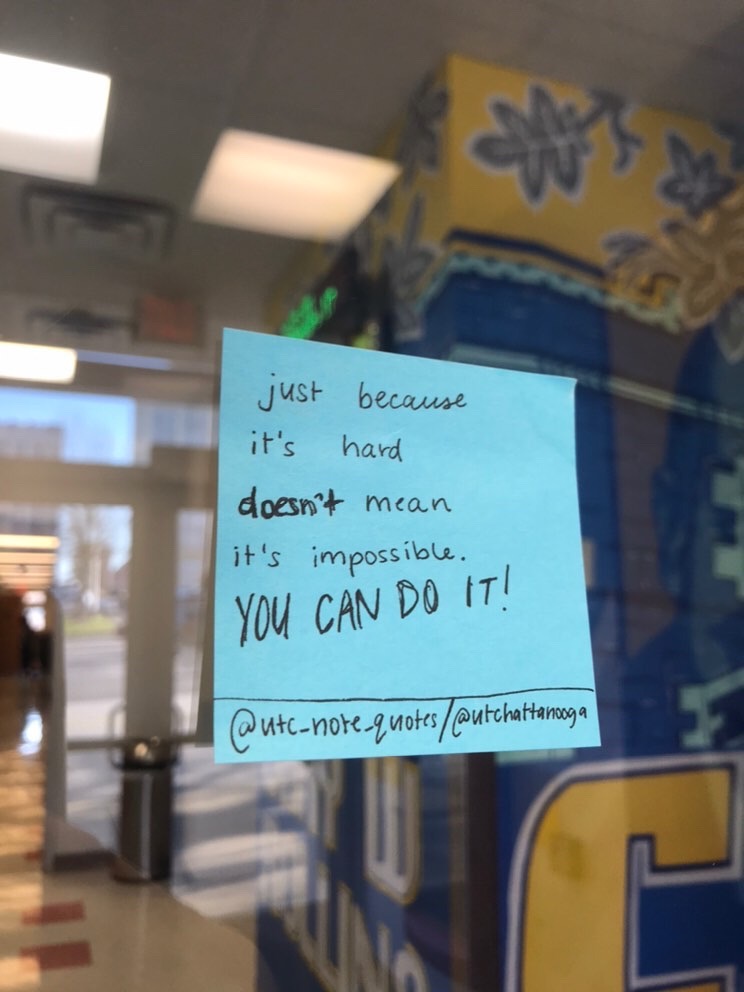 just because
it's hard
doesn't mean
it's impossible.
YOU CAN DO IT!
@utc_note_quotes/@utchattanooga